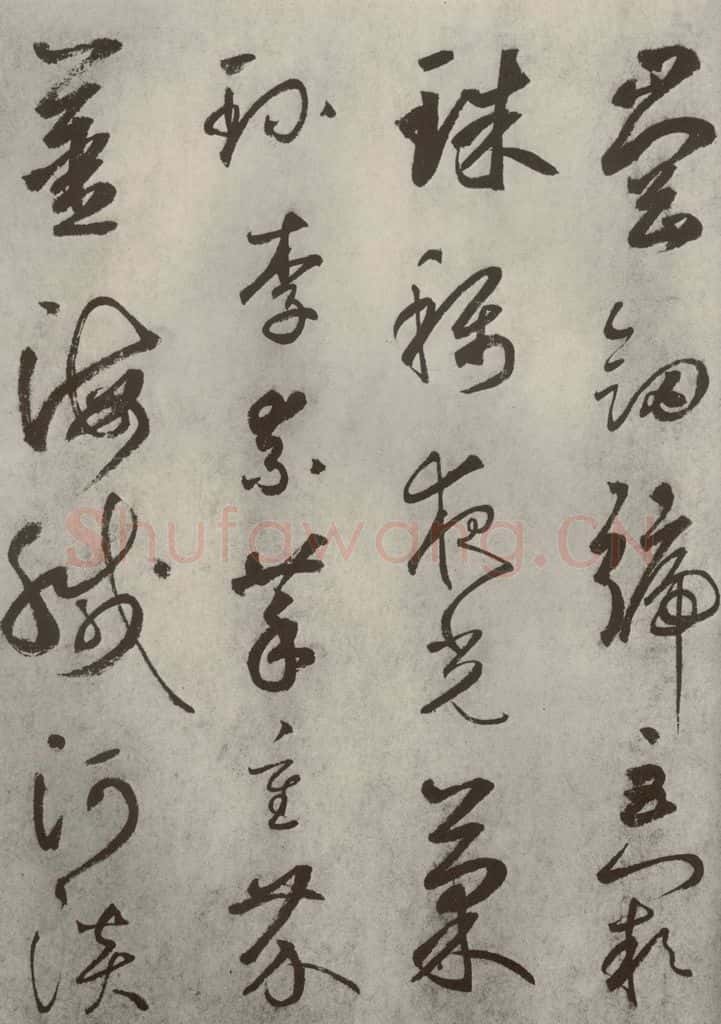 崗劍號巨闕
珠稱夜光菓
珍李柰菜重芥
薑海鹹河淡
Shufawang.CN